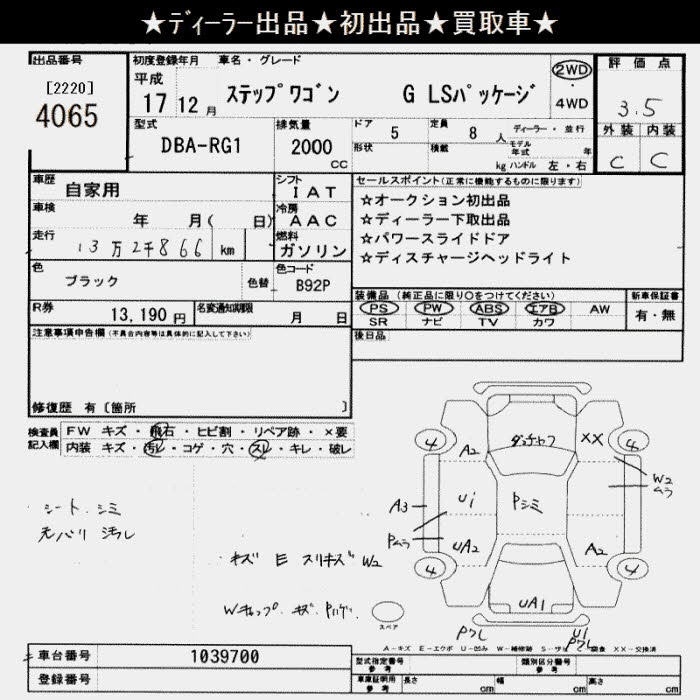 ★ディーラー出品★初出品★買取車★
出品番号
[2220]
4065
初度登録年月
平成
17 12 月
車名・グレード
ステップワゴン G LSパッケージ
2WD
・
4WD
評価点
3.5
外装 内装
C C
型式
DBA-RG1
排気量
2000
CC
ドア
5
定員
8 人
ディーラー・並行
形状
積載
kg
モデル年式
年
ハンドル 左・右
車歴
自家用
シフト
IAT
車検
年 月( 日)
冷房
AAC
走行
13万2千866
km
燃料
ガソリン
色
ブラック
色替
色コード
B92P
R券
13,190 円
名変通知期限
月 日
セールスポイント(正常に機能するものに限ります)
☆オークション初出品
☆ディーラー下取出品
☆パワースライドドア
☆ディスチャージヘッドライト
装備品 (純正品に限り○をつけてください)
PS PW ABS エアB AW
SR ナビ TV カワ
新車保証書
有・無
後日品
注意事項申告欄(不具合内容等は具体的に記入して下さい)
修復歴 有〔箇所 〕
検査員
記入欄
FW キズ・飛石・ヒビ割・リペア跡・×要
内装 キズ・汚レ・コゲ・穴・スレ・キレ・破レ
シート、シミ
汚レ
キズ E スリキズ W2
Wキャップ キズ
4
A2
XX
4
W2
ムラ
A3
Ui
Pシミ
Pムラ
UA2
A2
4
4
UA1
スペア
Pワレ
U1
Pワレ
A-キズ E-エクボ U-凹み W-補修跡 S-サビ C-腐食 XX-交換済
車台番号
1039700
登録番号
型式指定番号
参考
類別区分番号
参考
車庫証明用
参考
長さ
cm
幅
cm
高さ
cm